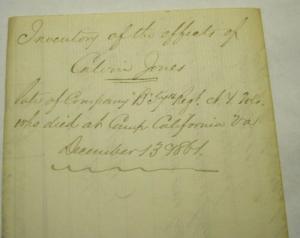 Inventory of the effects of
Calvin Jones
late of Company B Regt. N.Y. Vols.
who died at Camp California Va
December 13 1861.